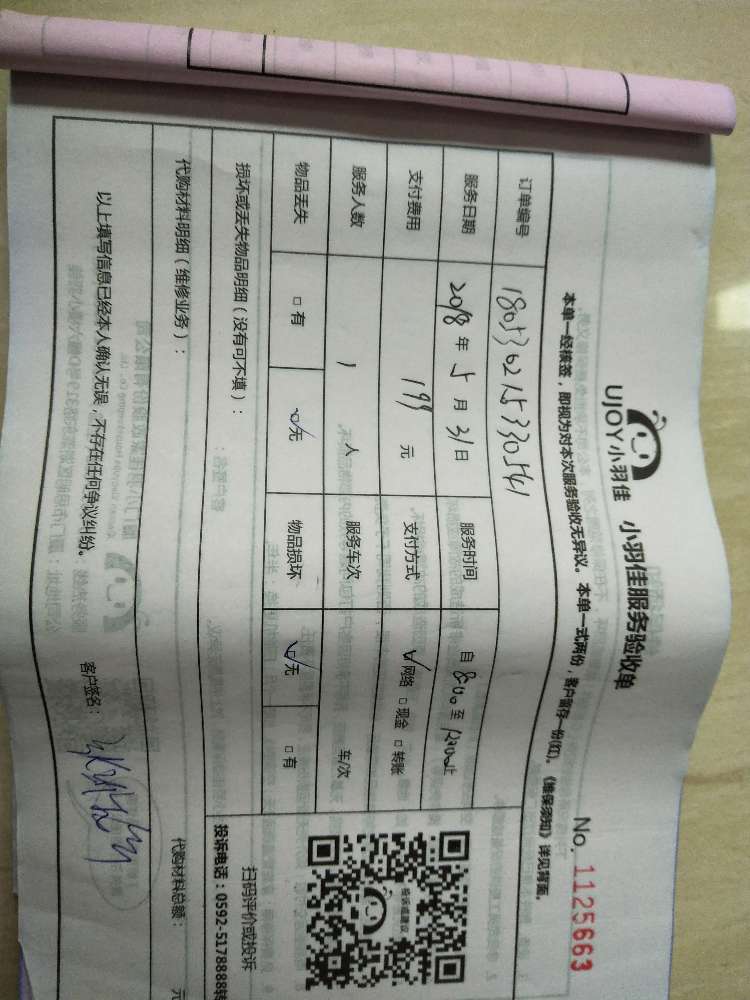 UJOY小羽佳 小羽佳服务验收单
No. 1125663
本单一经核签，即视为对本次服务验收无异议。本单一式两份，客户留存一份(红)。《维保须知》详见背面。
订单编号
服务日期 2018年5月31日 服务时间 自8:00至12:00止
支付费用 199元 支付方式 网络 □现金 □转账
服务人数 1人 服务车次 车/次
物品丢失 □有 □无 物品损坏 □无 □有
损坏或丢失物品明细（没有可不填）：
代购材料明细（维修业务）：
代购材料总额： 元
以上填写信息已经本人确认无误，不存在任何争议纠纷。 客户签名：
投诉或建议
扫码评价或投诉
投诉电话：0592-5178888转